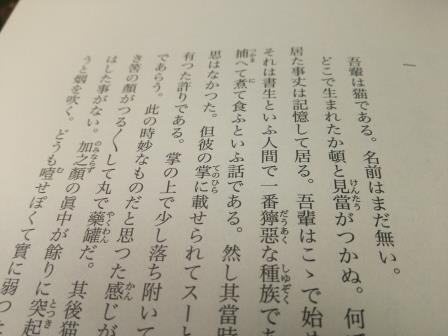 一
吾輩は猫である。名前はまだ無い。
どこで生まれたか頓と見當がつかぬ。何で
居た事丈は記憶して居る。吾輩はこゝで始め
それは書生といふ人間で一番獰惡な種族であ
捕へて煮て食ふといふ話である。然し其當時
思はなかつた。但彼の掌に載せられてスーと
有つた許りである。掌の上で少し落ち附いて
であらう。此の時妙なものだと思つた感じが
き筈の顏がつる〱して丸で藥罐だ。其後猫
はした事がない。加之顏の眞中が餘りに突起
うと烟を吹く。どうも咽せぽくて實に弱つた